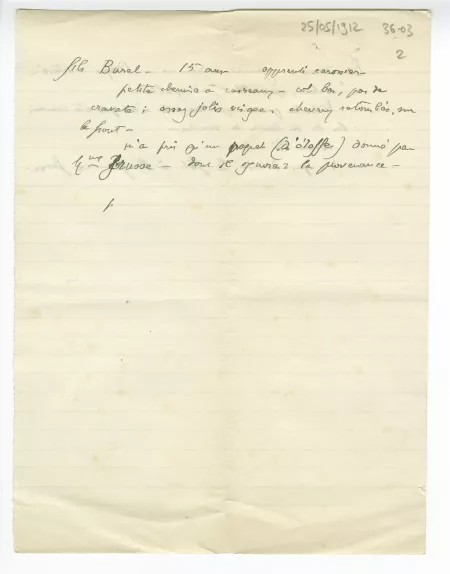 25/05/1912 36-03
2
fils Burel - 15 ans apprenti
petite chemise à carreaux - col bas, pas de
cravate; assez jolie figure, cheveux retombés sur
le front -
n'a pris qu'un paquet (d'étoffe) donné par
- dont il ignorait la provenance -